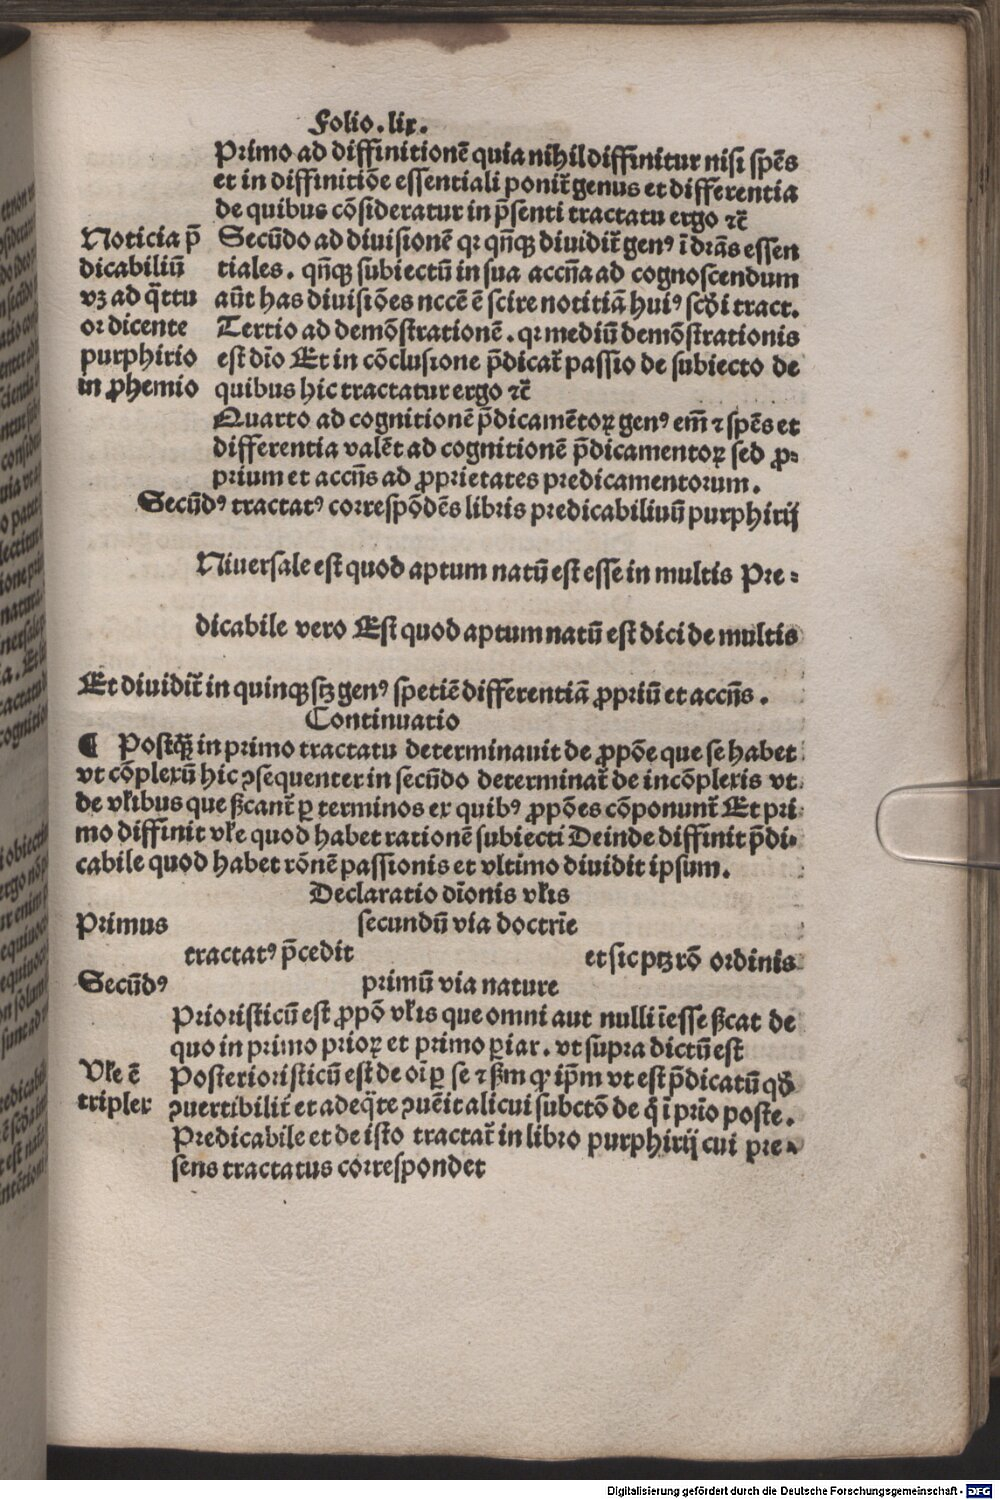 Folio.lix.
Primo ad diffinitionē quia nihil diffinitur nisi spēs
et in diffinitiōe essentiali ponit̄ genus et differentia
de quibus cōsideratur in p̄senti tractatu ergo ⁊c̄
Noticia p̄
dicabiliū
vꝫ ad q̄ttu
or dicente
purphirio
in ꝓhemio
Secūdo ad diuisionē qꝛ qn̄qꝫ diuidit̄ genꝰ ī dr̄as essen
tiales. qn̄qꝫ subiectū in sua accn̄a ad cognoscendum
aūt has diuisiōes nccē ē scire notitiā huiꝰ scd̄i tract.
Tertio ad demōstrationē. qꝛ mediū demōstrationis
est dīo Et in cōclusione p̄dicat̄ passio de subiecto de
quibus hic tractatur ergo ⁊c̄
Quarto ad cognitionē p̄dicamētoꝝ genꝰ em̄ ⁊ spēs et
differentia valēt ad cognitionē p̄dicamentoꝝ sed ꝓ-
prium et accn̄s ad ꝓprietates predicamentorum.
Secūdꝰ tractatꝰ correspōdēs libris predicabiliuū purphirij
Niuersale est quod aptum natū est esse in multis Pre-
dicabile vero Est quod aptum natū est dici de multis
Et diuidit̄ in quinqꝫ sꝫ genꝰ spetiē differentiā ꝓpriū et accn̄s.
Continuatio
¶ Postqꝫ̄ in primo tractatu determinauit de ꝓpōe que se habet
vt cōplexū hic ꝯsequenter in secūdo determinat̄ de incōplexis vt
de vl̄ibus que ßcant̄ ꝑ terminos ex quibꝰ ꝓpōes cōponunt̄ Et pri
mo diffinit vl̄e quod habet rationē subiecti Deinde diffinit p̄di-
cabile quod habet rōnē passionis et vltimo diuidit ipsum.
Declaratio dīonis vl̄is
Primus
secundū via doctrīe
tractatꝰ p̄cedit
et sic ptꝫ rō ordinis
Secūdꝰ
primū via nature
Prioristicū est ꝓpō vl̄is que omni aut nulli īesse ßcat de
quo in primo prioꝝ et primo ꝑiar. vt supra dictū est
Vl̄e ē
triplex
Posterioristicū est de oī ꝑ se ⁊ ßm ꝙ ip̄m vt est p̄dicatū qd̄
ꝯuertibilit̄ et adeq̄te ꝯuēit alicui subctō de q̄ ī prīo poste.
Predicabile et de isto tractat̄ in libro purphirij cui pre-
sens tractatus correspondet
Digitalisierung gefördert durch die Deutsche Forschungsgemeinschaft - DFG